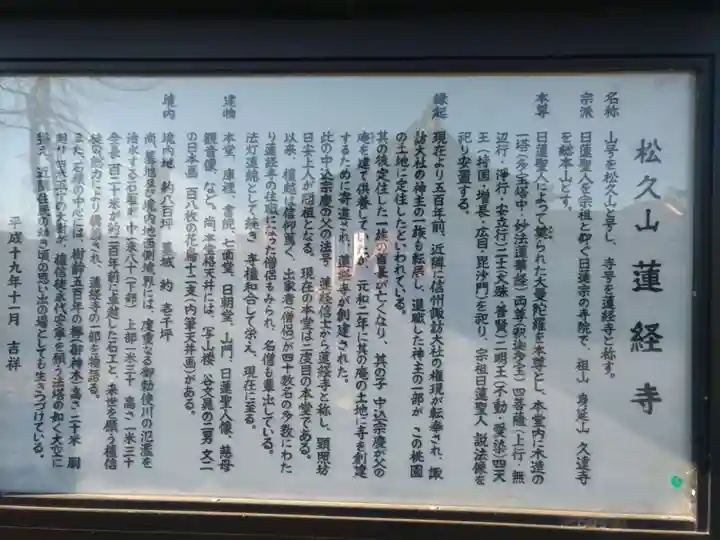 松久山 蓮経寺
名称 山号を松久山と号し、寺号を蓮経寺と称す。
宗派 日蓮聖人を宗祖と仰ぐ日蓮宗の寺院で、祖山 身延山 久遠寺
を総本山とす。
本尊 日蓮聖人によって顕られた大曼陀羅を本尊とし、本堂内に木造の
一塔(多宝塔中・妙法蓮華経)両尊(釈迦多宝)四菩薩(上行・無
辺行・浄行・安立行)二士(文殊・普賢)二明王(不動・愛染)四天
王(持国・増長・広目・毘沙門)を祀り、宗祖日蓮聖人 説法像を
祀り安置する。
縁起 現在より五百年前、近隣に信州諏訪大社の権現が転奉され、諏
訪大社の神主の一族も転居し、退職した神主の一部が この桃園
の土地に定住したといわれている。
其の後定住した一族の首長が亡くなり、其の子 中込宗慶が父の
庵を建て供養していたが、元和二年に其の庵の土地に寺を創建
するために寄進され、蓮経寺が創建された。
此の中込宗慶の父の法号 蓮経信士から蓮経寺と称し、顕照坊
日安上人が開祖となる。現在の本堂は二度目の本堂である。
以来、檀越は信仰篤く、出家者(僧侶)が四十数名の多数にわた
り蓮経寺の住職になった僧侶もみられ、名僧も輩出している。
法灯連綿として続き 寺檀和合して栄え、現在に至る。
建物 本堂、庫裡、書院、七面堂、日朝堂、山門、日蓮聖人像、慈母
観音像、など。尚、本堂格天井には、写山楼 谷文晁の二男 文二
の日本画 百八枚の花鳥十二支(内筆天井画)がある。
境内 境内地 約八百坪 墓域 約 壱千坪
尚、墓地星が境内地西側境界には、度重なる御勅使川の氾濫を
治水する石垣が 中二米八十(下部) 上部一米三十 高さ一米三十
全長一百二十米が約二百年前に卓越した石工と、来世を願う檀信
徒の助力により構築され、蓮経寺の一部を擁護る。
また、石垣の中心には、樹齢五百年の欅(御神木)高さ二十米 胴
廻り四米五十の大樹が、檀信徒永代安寧を願う法塔の如く大空に
聳え、近隣住民の幼き頃の思い出の場としても生きつづけている。
平成十九年十一月 吉祥